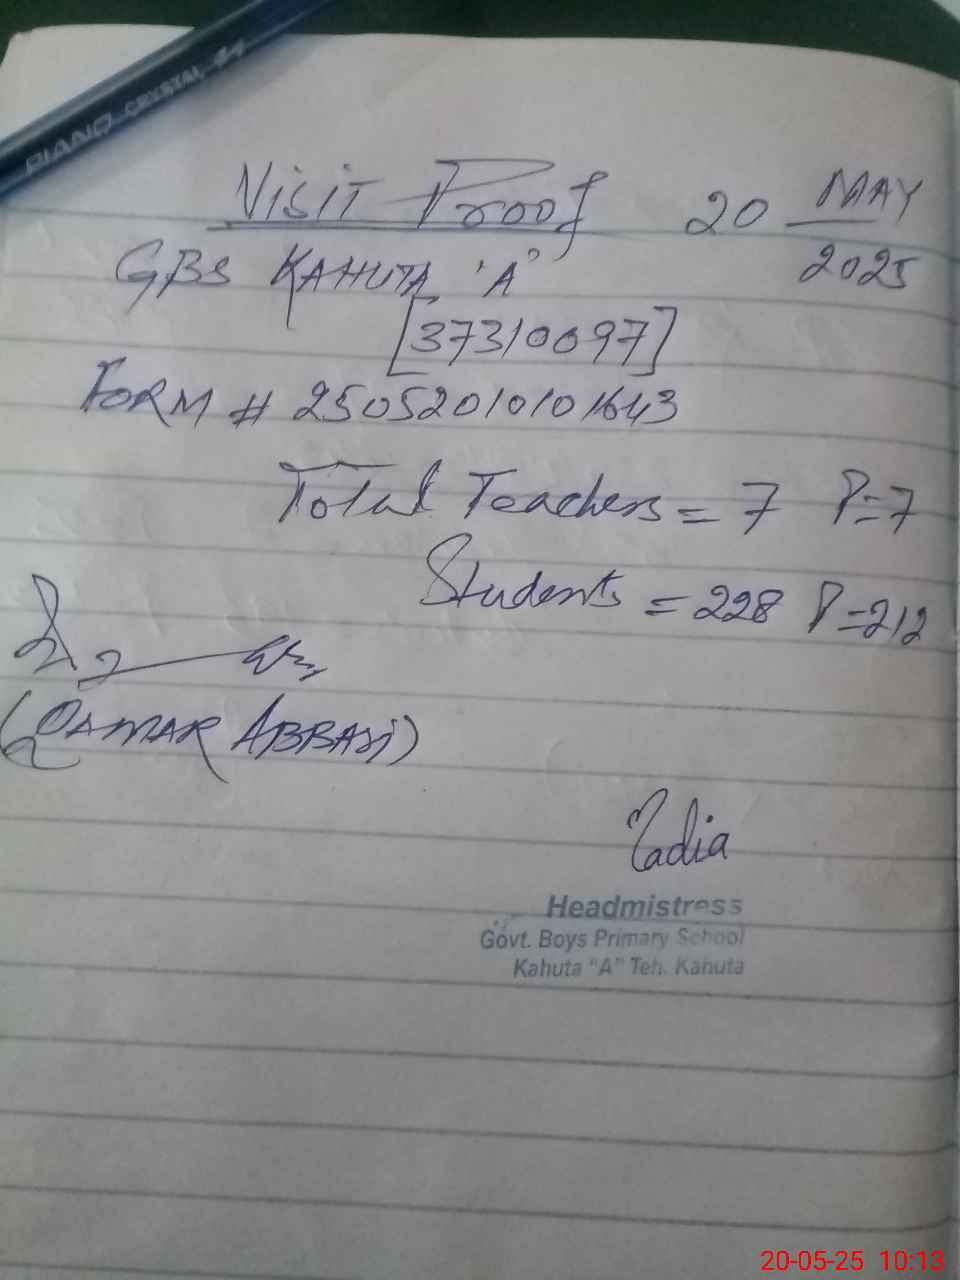 PIANO CRYSTAL
Visit Proof 20 MAY
2025
GBS KAHUTA 'A'
[37310097]
FORM # 25052010101643
Total Teachers = 7 P=7
Students = 228 P=212
(QAMAR ABBASi)
Nadia
Headmistress
Govt. Boys Primary School
Kahuta "A" Teh. Kahuta
20-05-25 10:13